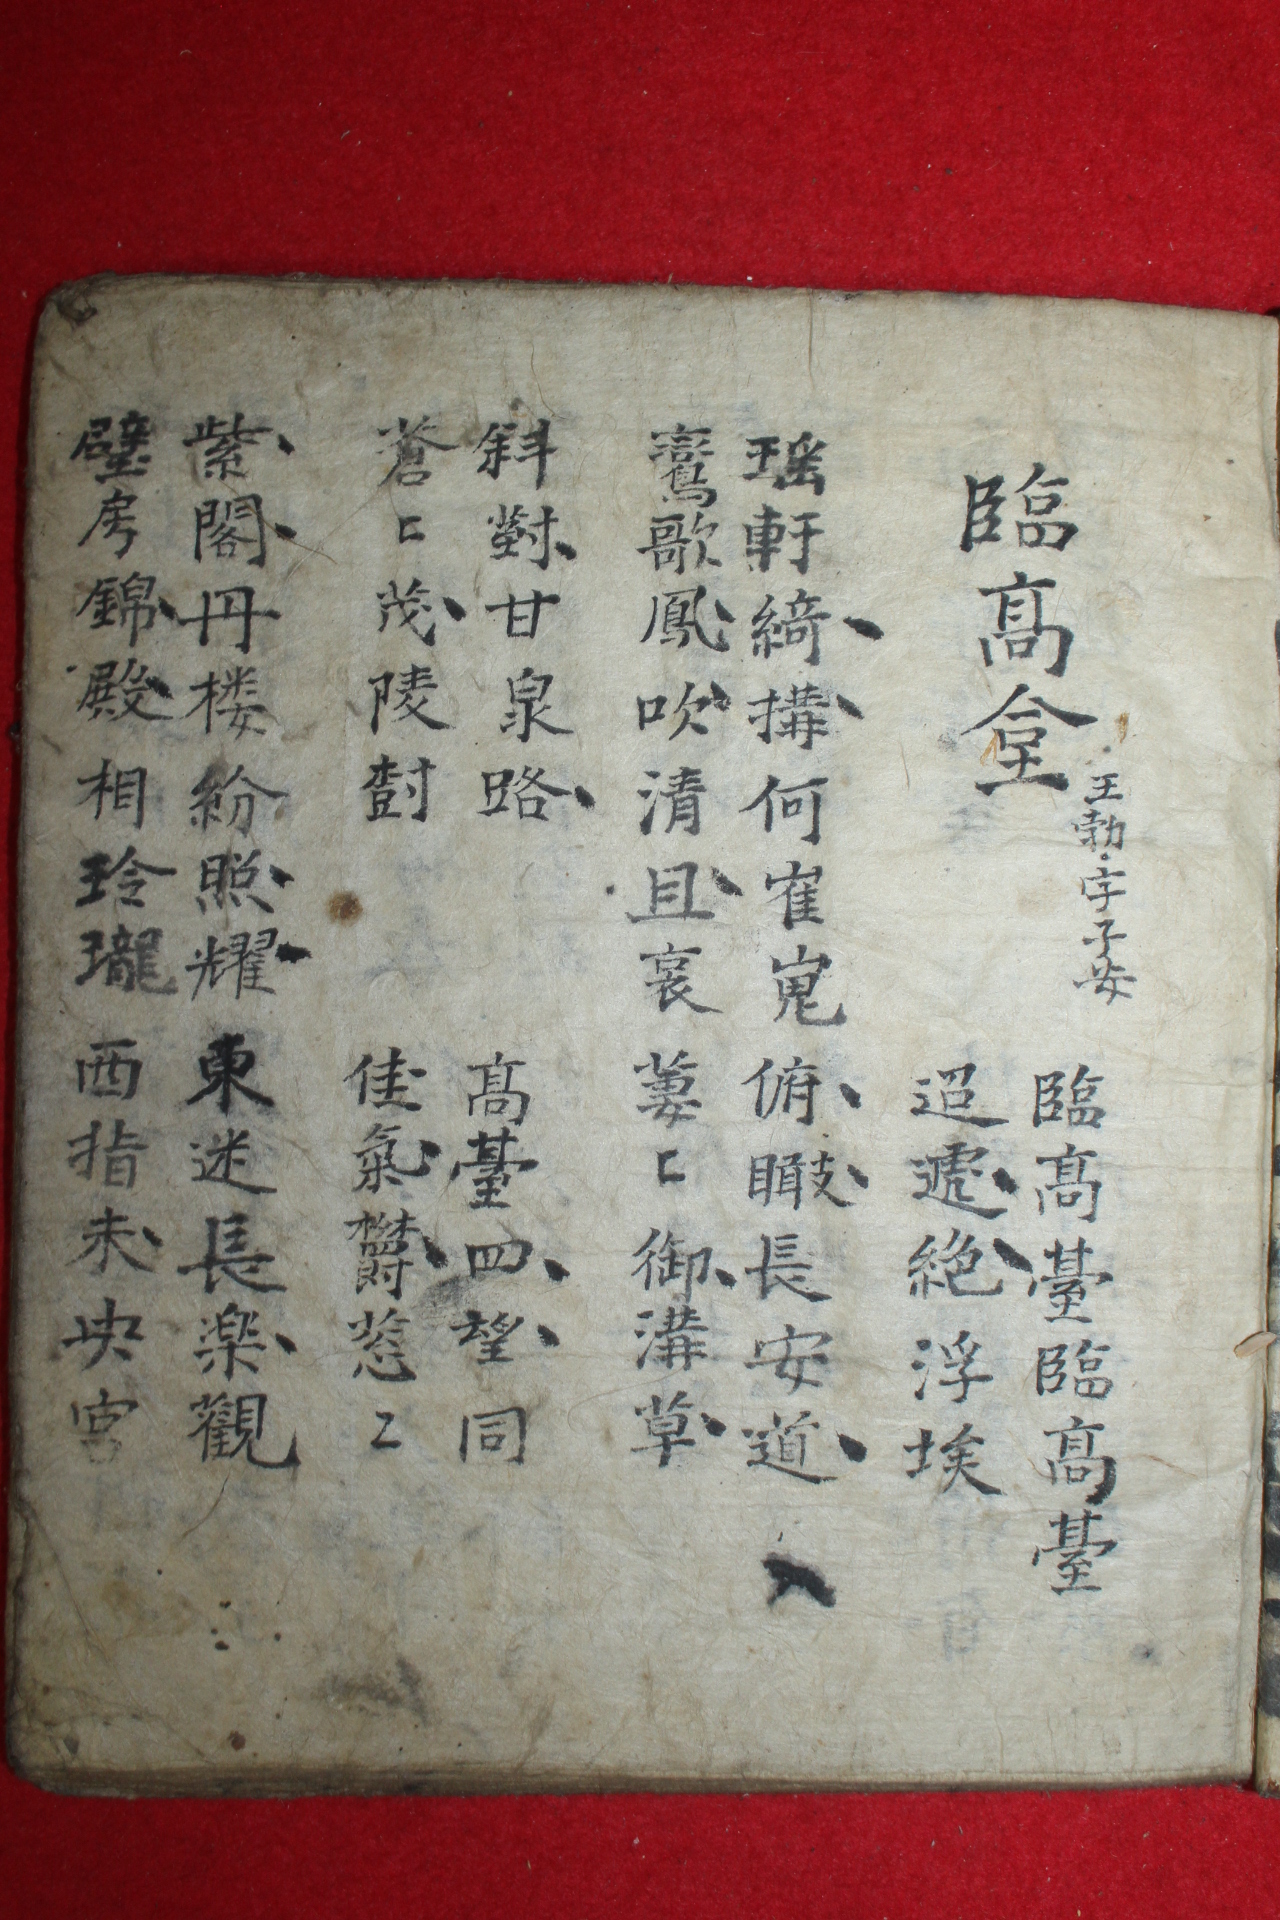 臨髙臺
王勃字子安
臨髙臺臨髙臺
迢遞絶浮埃
瑶軒綺搆何崔嵬
鸞歌鳳吹清且哀
俯瞰長安道
萋〻御溝草
斜對甘泉路
蒼〻茂陵樹
髙臺四望同
佳氣欝葱〻
紫閣丹楼紛照耀
壁房錦殿相玲瓏
東迷長楽觀
西指未央宮